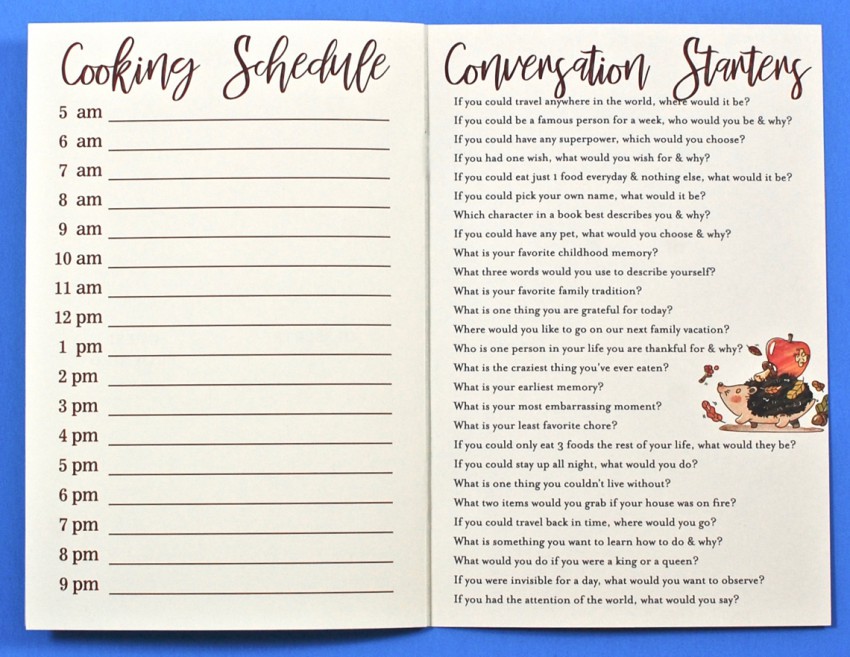 Cooking Schedule
5 am
6 am
7 am
8 am
9 am
10 am
11 am
12 pm
1 pm
2 pm
3 pm
4 pm
5 pm
6 pm
7 pm
8 pm
9 pm
Conversation Starters
If you could travel anywhere in the world, where would it be?
If you could be a famous person for a week, who would you be & why?
If you could have any superpower, which would you choose?
If you had one wish, what would you wish for & why?
If you could eat just 1 food everyday & nothing else, what would it be?
If you could pick your own name, what would it be?
Which character in a book best describes you & why?
If you could have any pet, what would you choose & why?
What is your favorite childhood memory?
What three words would you use to describe yourself?
What is your favorite family tradition?
What is one thing you are grateful for today?
Where would you like to go on our next family vacation?
Who is one person in your life you are thankful for & why?
What is the craziest thing you've ever eaten?
What is your earliest memory?
What is your most embarrassing moment?
What is your least favorite chore?
If you could only eat 3 foods the rest of your life, what would they be?
If you could stay up all night, what would you do?
What is one thing you couldn't live without?
What two items would you grab if your house was on fire?
If you could travel back in time, where would you go?
What is something you want to learn how to do & why?
What would you do if you were a king or a queen?
If you were invisible for a day, what would you want to observe?
If you had the attention of the world, what would you say?